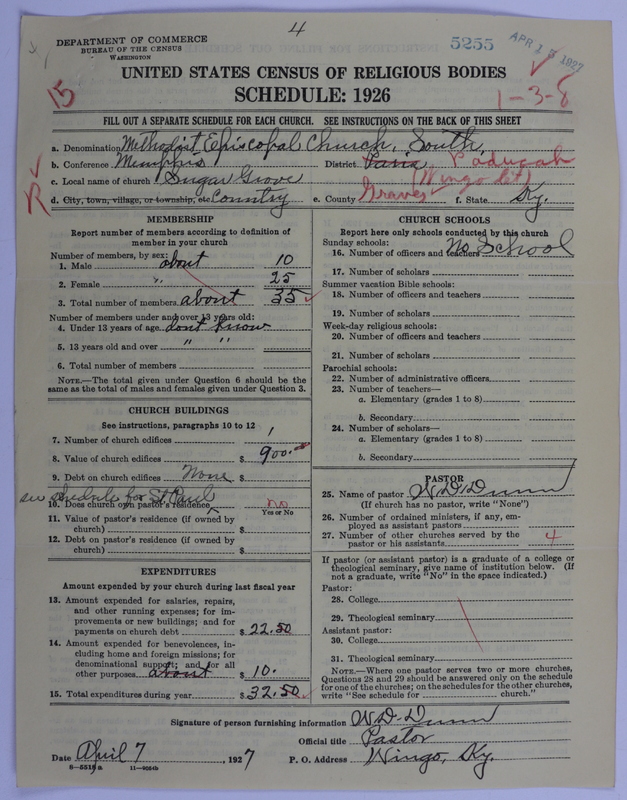 4
DEPARTMENT OF COMMERCE
BUREAU OF THE CENSUS
WASHINGTON
5255
APR 1 1927
UNITED STATES CENSUS OF RELIGIOUS BODIES
SCHEDULE: 1926
15
1-3-8
FILL OUT A SEPARATE SCHEDULE FOR EACH CHURCH. SEE INSTRUCTIONS ON THE BACK OF THIS SHEET
a. Denomination Methodist Episcopal Church, South,
b. Conference Memphis District Paris Paducah
c. Local name of church Sugar Grove (Wingo Ct)
d. City, town, village, or township, etc Country e. County Graves f. State Ky.
MEMBERSHIP
Report number of members according to definition of
member in your church
Number of members, by sex:
1. Male about 10
2. Female " 25
3. Total number of members about 35
Number of members under and over 13 years old:
4. Under 13 years of age dont know
5. 13 years old and over " "
6. Total number of members
NOTE.—The total given under Question 6 should be the
same as the total of males and females given under Question 3.
CHURCH BUILDINGS
See instructions, paragraphs 10 to 12
7. Number of church edifices 1
8. Value of church edifices $ 900.
9. Debt on church edifices None $
see schedule for St Paul
10. Does church own pastor's residence no
Yes or No
11. Value of pastor's residence (if owned by
church) $
12. Debt on pastor's residence (if owned by
church) $
EXPENDITURES
Amount expended by your church during last fiscal year
13. Amount expended for salaries, repairs,
and other running expenses; for im-
provements or new buildings; and for
payments on church debt $ 22.50
14. Amount expended for benevolences, in-
cluding home and foreign missions; for
denominational support; and for all
other purposes about $ 10.
15. Total expenditures during year $ 32.50
CHURCH SCHOOLS
Report here only schools conducted by this church
Sunday schools:
16. Number of officers and teachers No School
17. Number of scholars
Summer vacation Bible schools:
18. Number of officers and teachers
19. Number of scholars
Week-day religious schools:
20. Number of officers and teachers
21. Number of scholars
Parochial schools:
22. Number of administrative officers
23. Number of teachers—
a. Elementary (grades 1 to 8)
b. Secondary
24. Number of scholars—
a. Elementary (grades 1 to 8)
b. Secondary
PASTOR
25. Name of pastor W. D. Dunn
(If church has no pastor, write "None")
26. Number of ordained ministers, if any, em-
ployed as assistant pastors
27. Number of other churches served by the
pastor or his assistants 4
If pastor (or assistant pastor) is a graduate of a college or
theological seminary, give name of institution below. (If
not a graduate, write "No" in the space indicated.)
Pastor:
28. College
29. Theological seminary
Assistant pastor:
30. College
31. Theological seminary
NOTE.—Where one pastor serves two or more churches,
Questions 28 and 29 should be answered only on the schedule
for one of the churches; on the schedules for the other churches,
write "See schedule for church."
Signature of person furnishing information W. D. Dunn
Official title Pastor
Date April 7, 1927 P. O. Address Wingo, Ky.